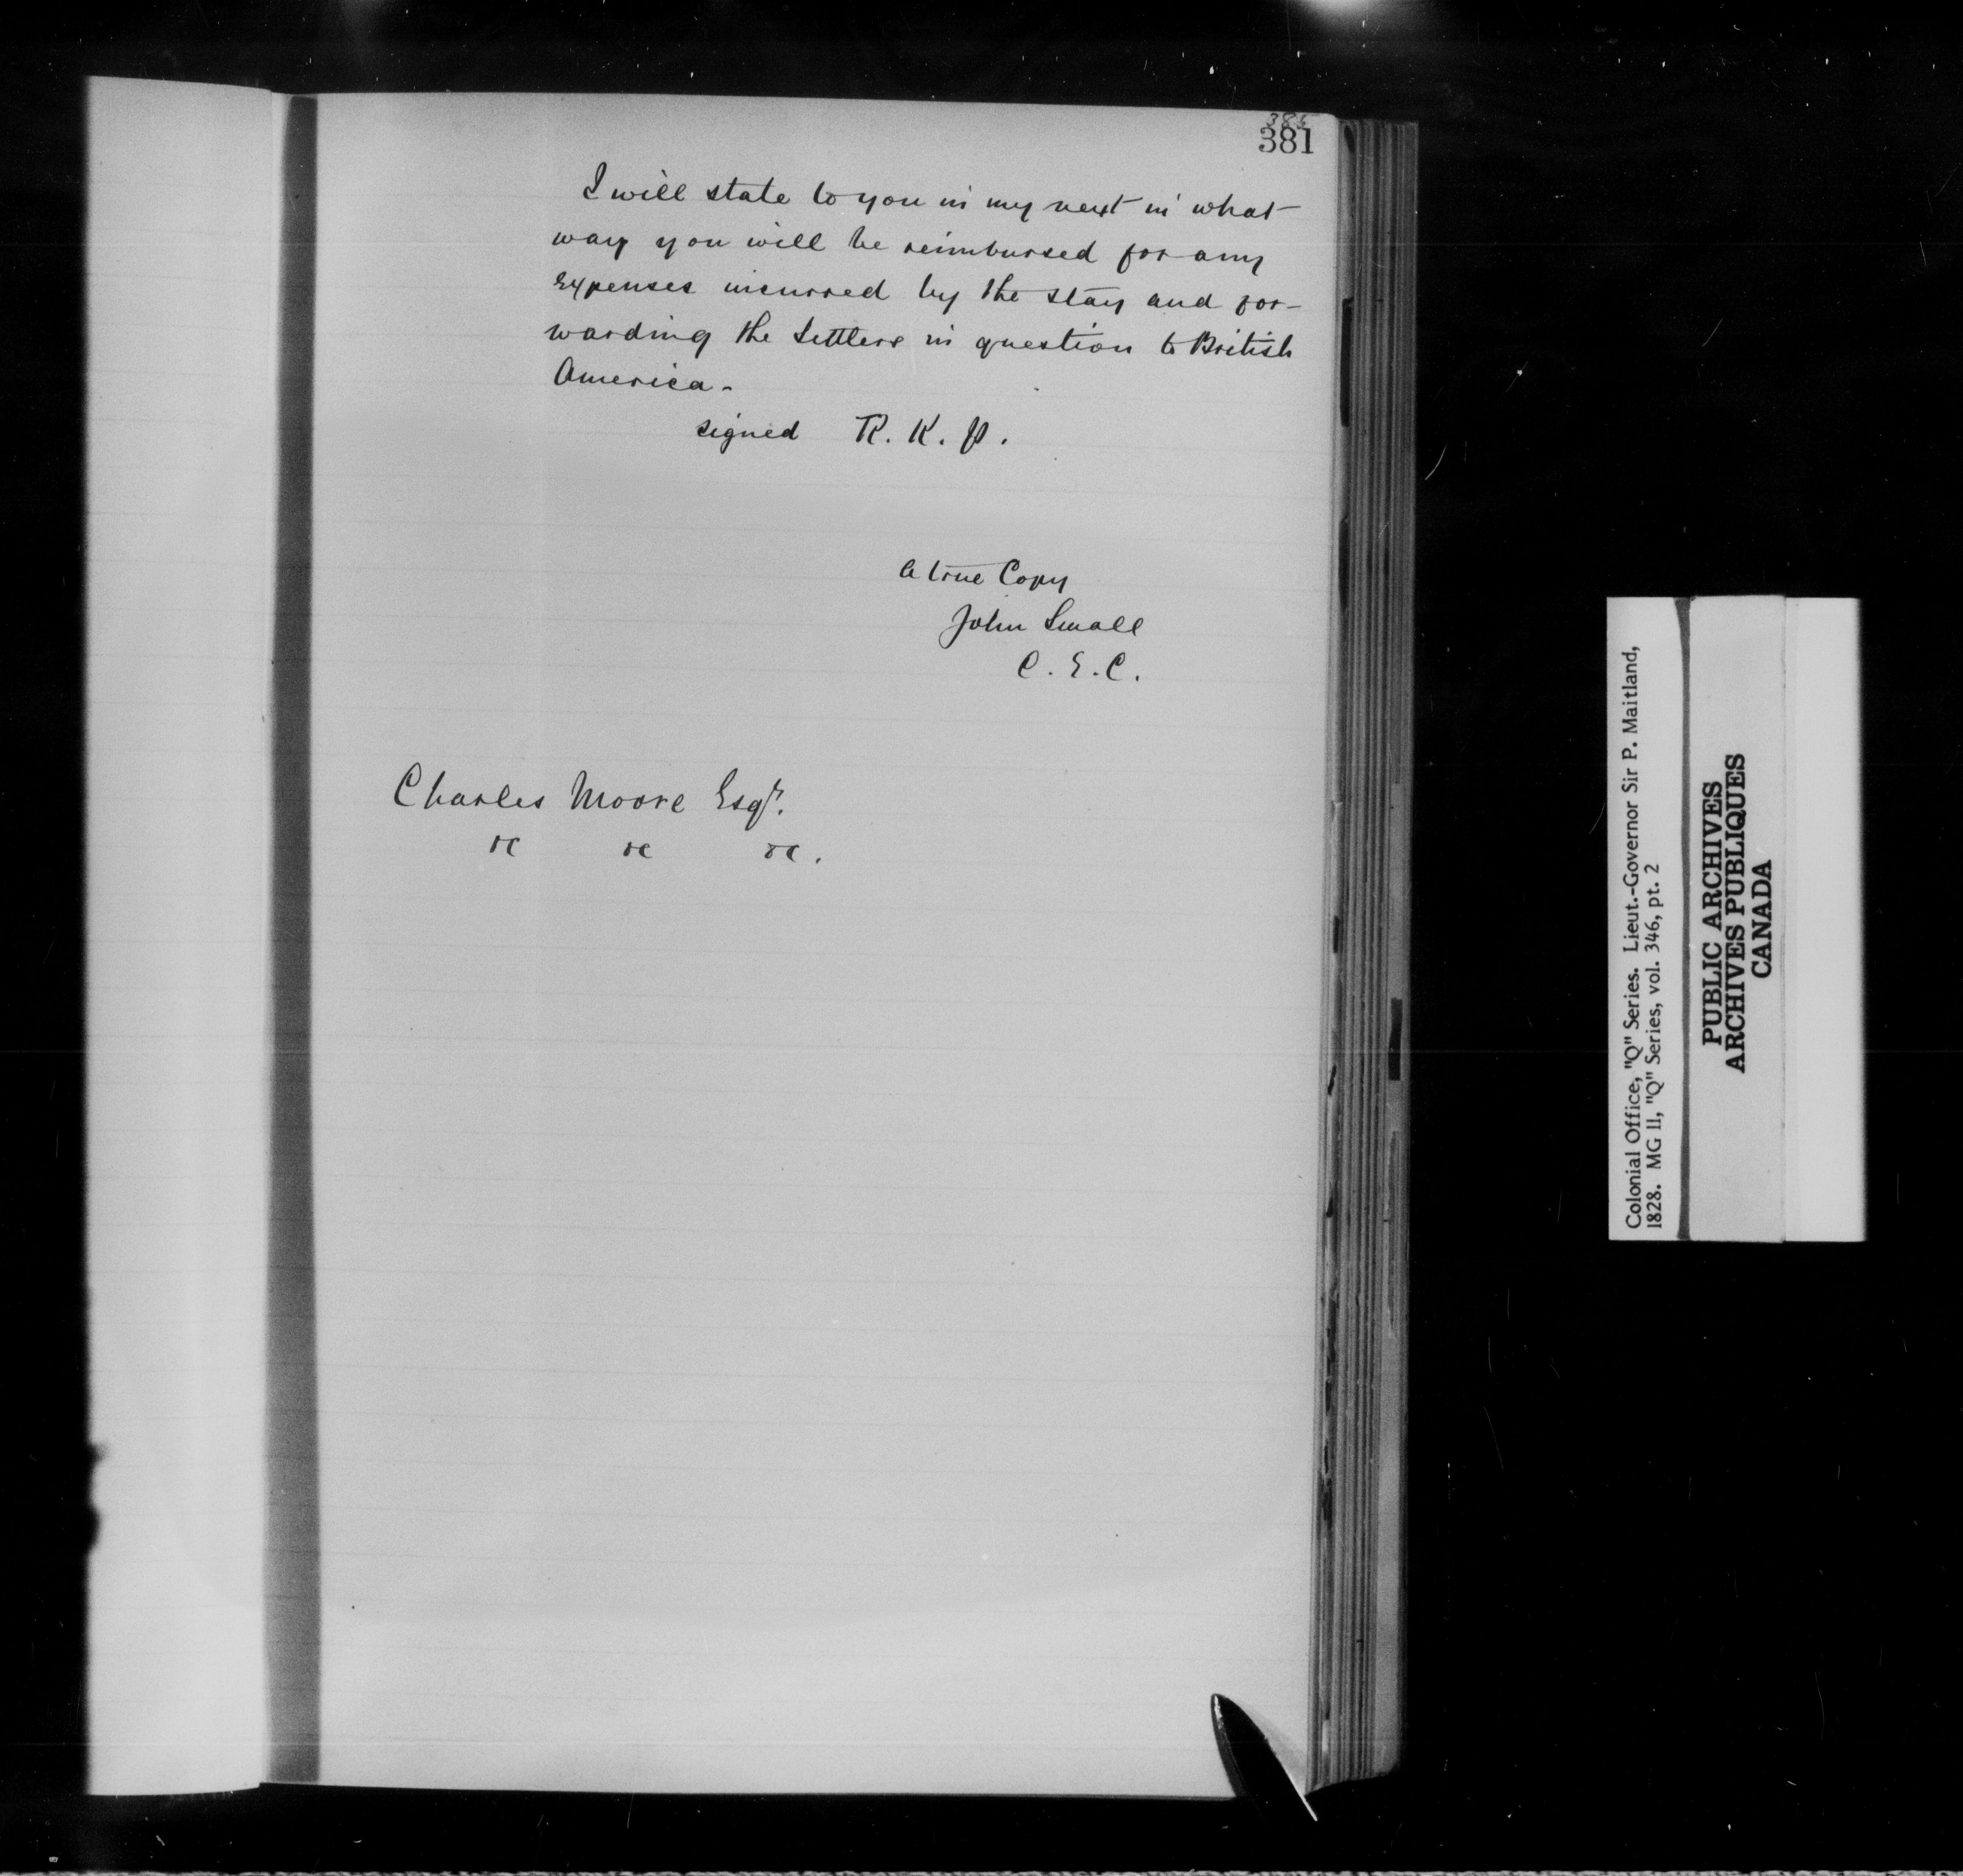 386
381
I will state to you in my next in what
way you will be reimbursed for any
expenses incurred by the stay and for-
warding the Settlers in question to British
America -
signed R. K. P.
A true Copy
John Small
C. E. C.
Charles Moore Esqr.
&c &c &c.
Colonial Office, "Q" Series. Lieut.-Governor Sir P. Maitland,
1828. MG 11, "Q" Series, vol. 346, pt. 2
PUBLIC ARCHIVES
ARCHIVES PUBLIQUES
CANADA